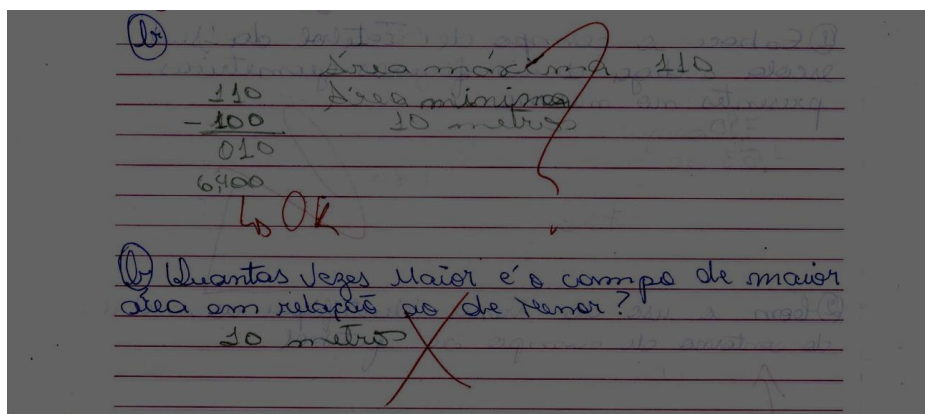 b
Área máxima 110
110 Área minima
- 100 10 metros
010
6,400
↳ OK
b Quantas vezes Maior é o campo de maior
área em relação ao de menor?
10 metros